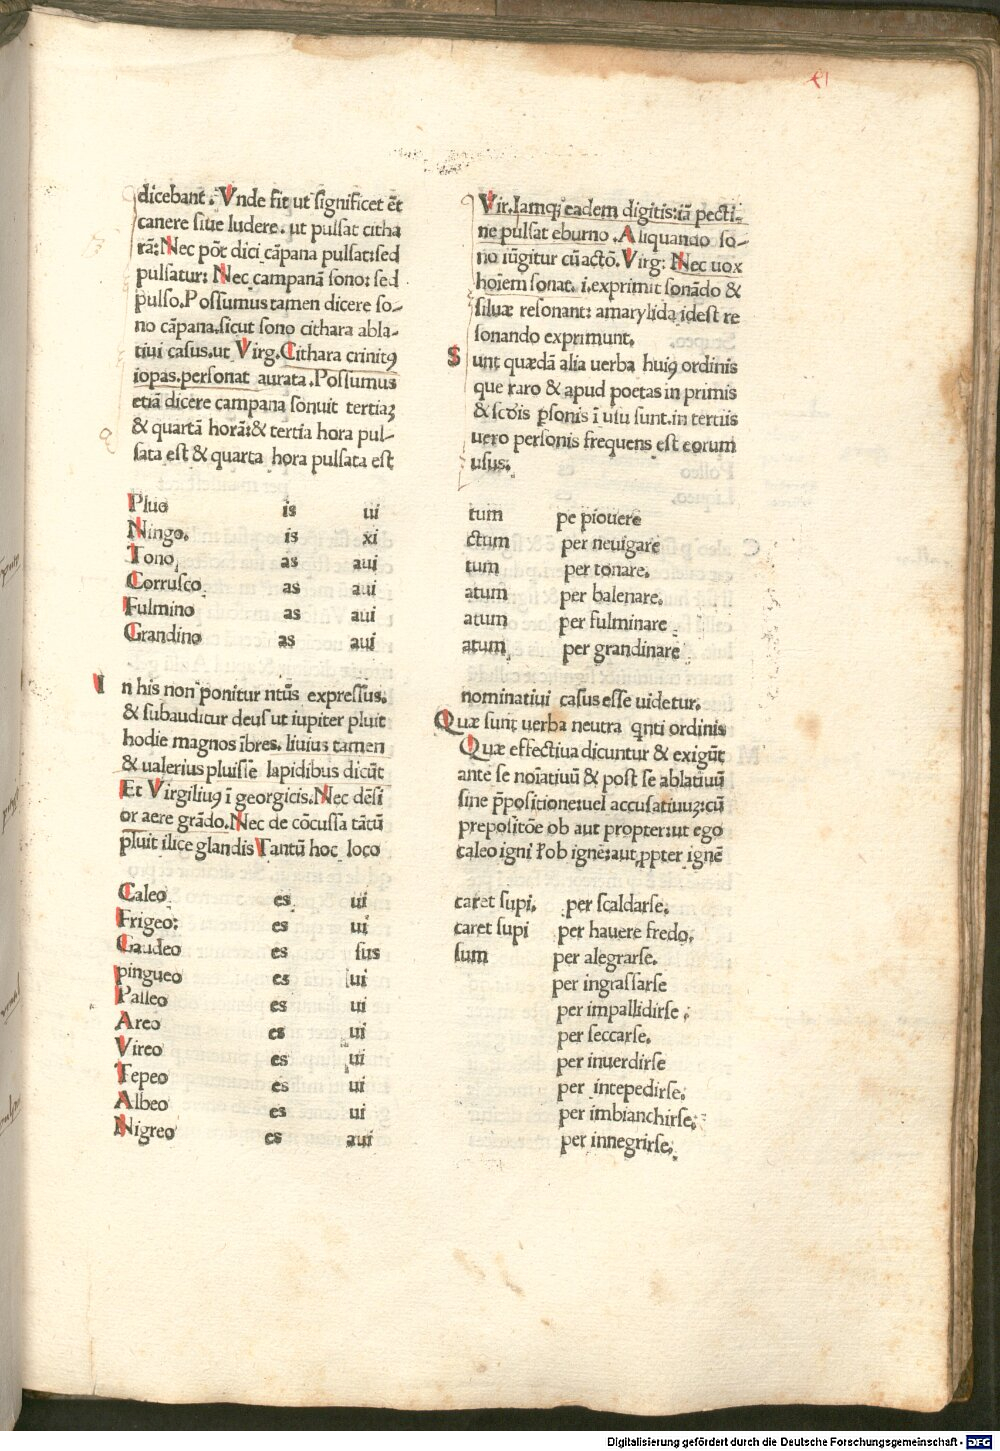 dicebant. Vnde fit ut significet ēt
canere siue ludere. ut pulsat citha
rā: Nec pōt dici cāpana pulsat: sed
pulsatur: Nec campanā sono: sed
pulso. Possumus tamen dicere so-
no cāpana. sicut sono cithara abla-
tiui casus. ut Virg. Cithara crinitꝰ
iopas. personat aurata. Possumus
etiā dicere campana sonuit tertiaꝫ
& quartā horā: & tertia hora pul-
sata est & quarta hora pulsata est
Vir. Iamqꝫ eadem digitis: iā pecti-
ne pulsat eburno. Aliquando so-
no iūgitur cū actō. Virg: Nec uox
hoīem sonat. i. exprimit sonādo &
siluæ resonant: amarylida idest re
sonando exprimunt.
Sunt quædā alia uerba huiꝰ ordinis
que raro & apud poetas in primis
& scdis ꝑsonis ī usu sunt. in tertiis
uero personis frequens est eorum
usus.
Pluo is ui tum pe piouere
Ningo. is xi ctum per neuigare
Tono as aui tum per tonare.
Corrusco as aui atum per balenare.
Fulmino as aui atum per fulminare
Grandino as aui atum per grandinare
In his non ponitur ntūs expressus.
& subauditur deus ut iupiter pluit
hodie magnos ībres. liuius tamen
& ualerius pluisse lapidibus dicūt
Et Virgiliꝰ ī georgicis. Nec dēsi
or aere grādo. Nec de cōcussa tātū
pluit ilice glandis Tantū hoc loco
nominatiui casus esse uidetur.
Quæ sunt uerba neutra qnti ordinis
Quæ effectiua dicuntur & exigūt
ante se noīatiuū & post se ablatiuū
sine p̄positione: uel accusatiuuꝫ: cū
prepositōe ob aut propter: ut ego
caleo igni ł ob ignē: aut ꝓpter ignē
Caleo es ui caret supi. per scaldarse.
Frigeo: es ui caret supi per hauere fredo.
Gaudeo es sus sum per alegrarse.
pingueo es ui per ingrassarse
Palleo es ui per impallidirse.
Areo es ui per seccarse.
Vireo es ui per inuerdirse
Tepeo es ui per intepedirse.
Albeo es ui per imbianchirse.
Nigreo es aui per innegrirse.
Digitalisierung gefördert durch die Deutsche Forschungsgemeinschaft - DFG